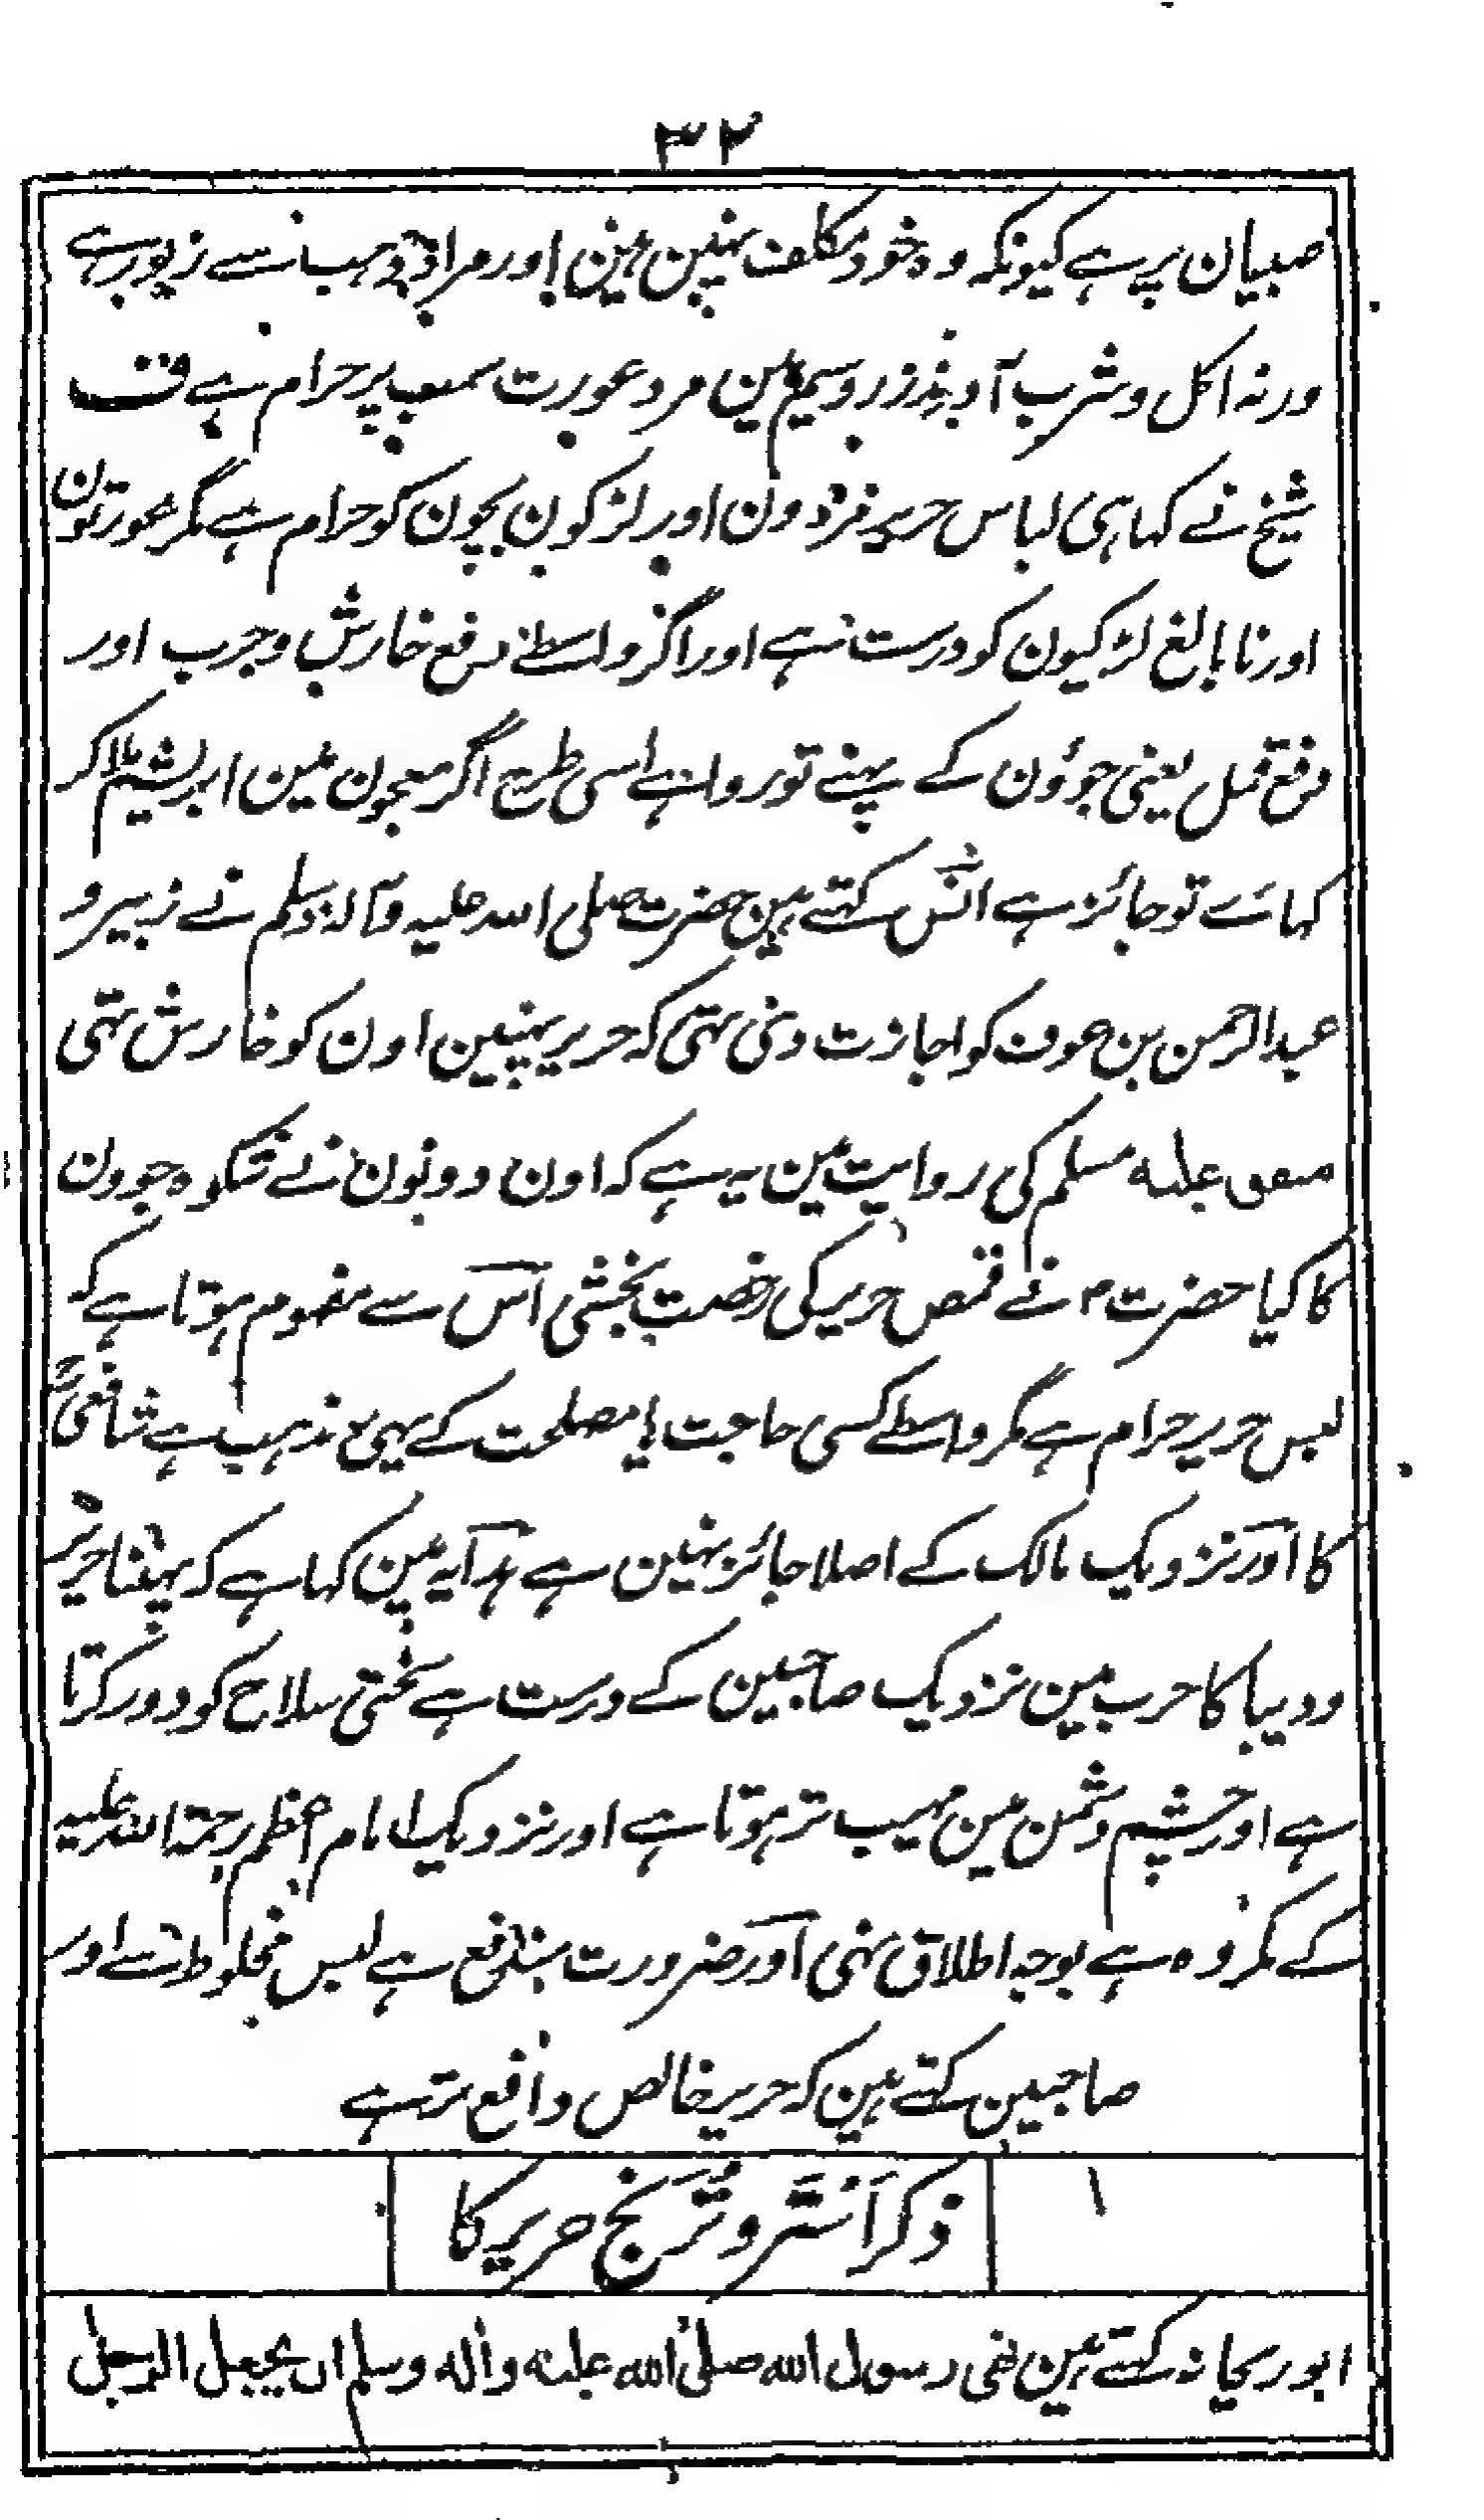 ۳۲
صبیان پر ہے کیونکہ وہ خود مکلف نہین ہین اور مراد ذہب سے زیور ہے
ورنہ اکل وشرب آوندزر وسیم مین مرد عورت سب پر حرام ہے ف
شیخ نے کہا ہی لباس حریر مردون اور لڑکون بچون کو حرام ہے مگر عورتون
اور نابالغ لڑکیون کو درست ہے اور اگر واسطے دفع خارش وجرب اور
دفع قمل یعنی جوؤن کے پہنے تو روا ہے اسی طرح اگر معجون مین ابریشم ملا کر
کہائے تو جائز ہے انس کہتے ہین حضرت صلی اللہ علیہ وآلہ وسلم نے زبیر و
عبدالرحمن بن عوف کو اجازت دی تہی کہ حریر پہنین اون کو خارش تہی
متفق علیہ مسلم کی روایت مین یہ ہے کہ اون دونون نے شکوہ جوون
کا کیا حضرت ؐ نے قمص حریر کی رخصت بخشی اس سے مفہوم ہوتا ہے کہ
لبس حریر حرام ہے مگر واسطے کسی حاجت یا مصلحت کے یہی مذہب ہے شافعیؒ
کا اور نزدیک مالک کے اصلا جائز نہین ہے ہدایہ مین کہا ہے کہ پہننا حریر
ودیبا کا حرب مین نزدیک صاحبین کے درست ہے سختی سلاح کو دور کرتا
ہے اور چشم دشمن مین مہیب تر ہوتا ہے اور نزدیک امام اعظم رحمۃ اللہ علیہ
کے مکروہ ہے بوجہ اطلاق نہی اور ضرورت مندفع ہے لبس مخلوط سے اور
صاحبین کہتے ہین کہ حریر خالص دافع تر ہے
۱
ذکر اَستَر و تُرَنج حریر کا
ابو ریحانہ کہتے ہین نهى رسول الله صلى الله عليه واٰله وسلم ان يجعل الرجل